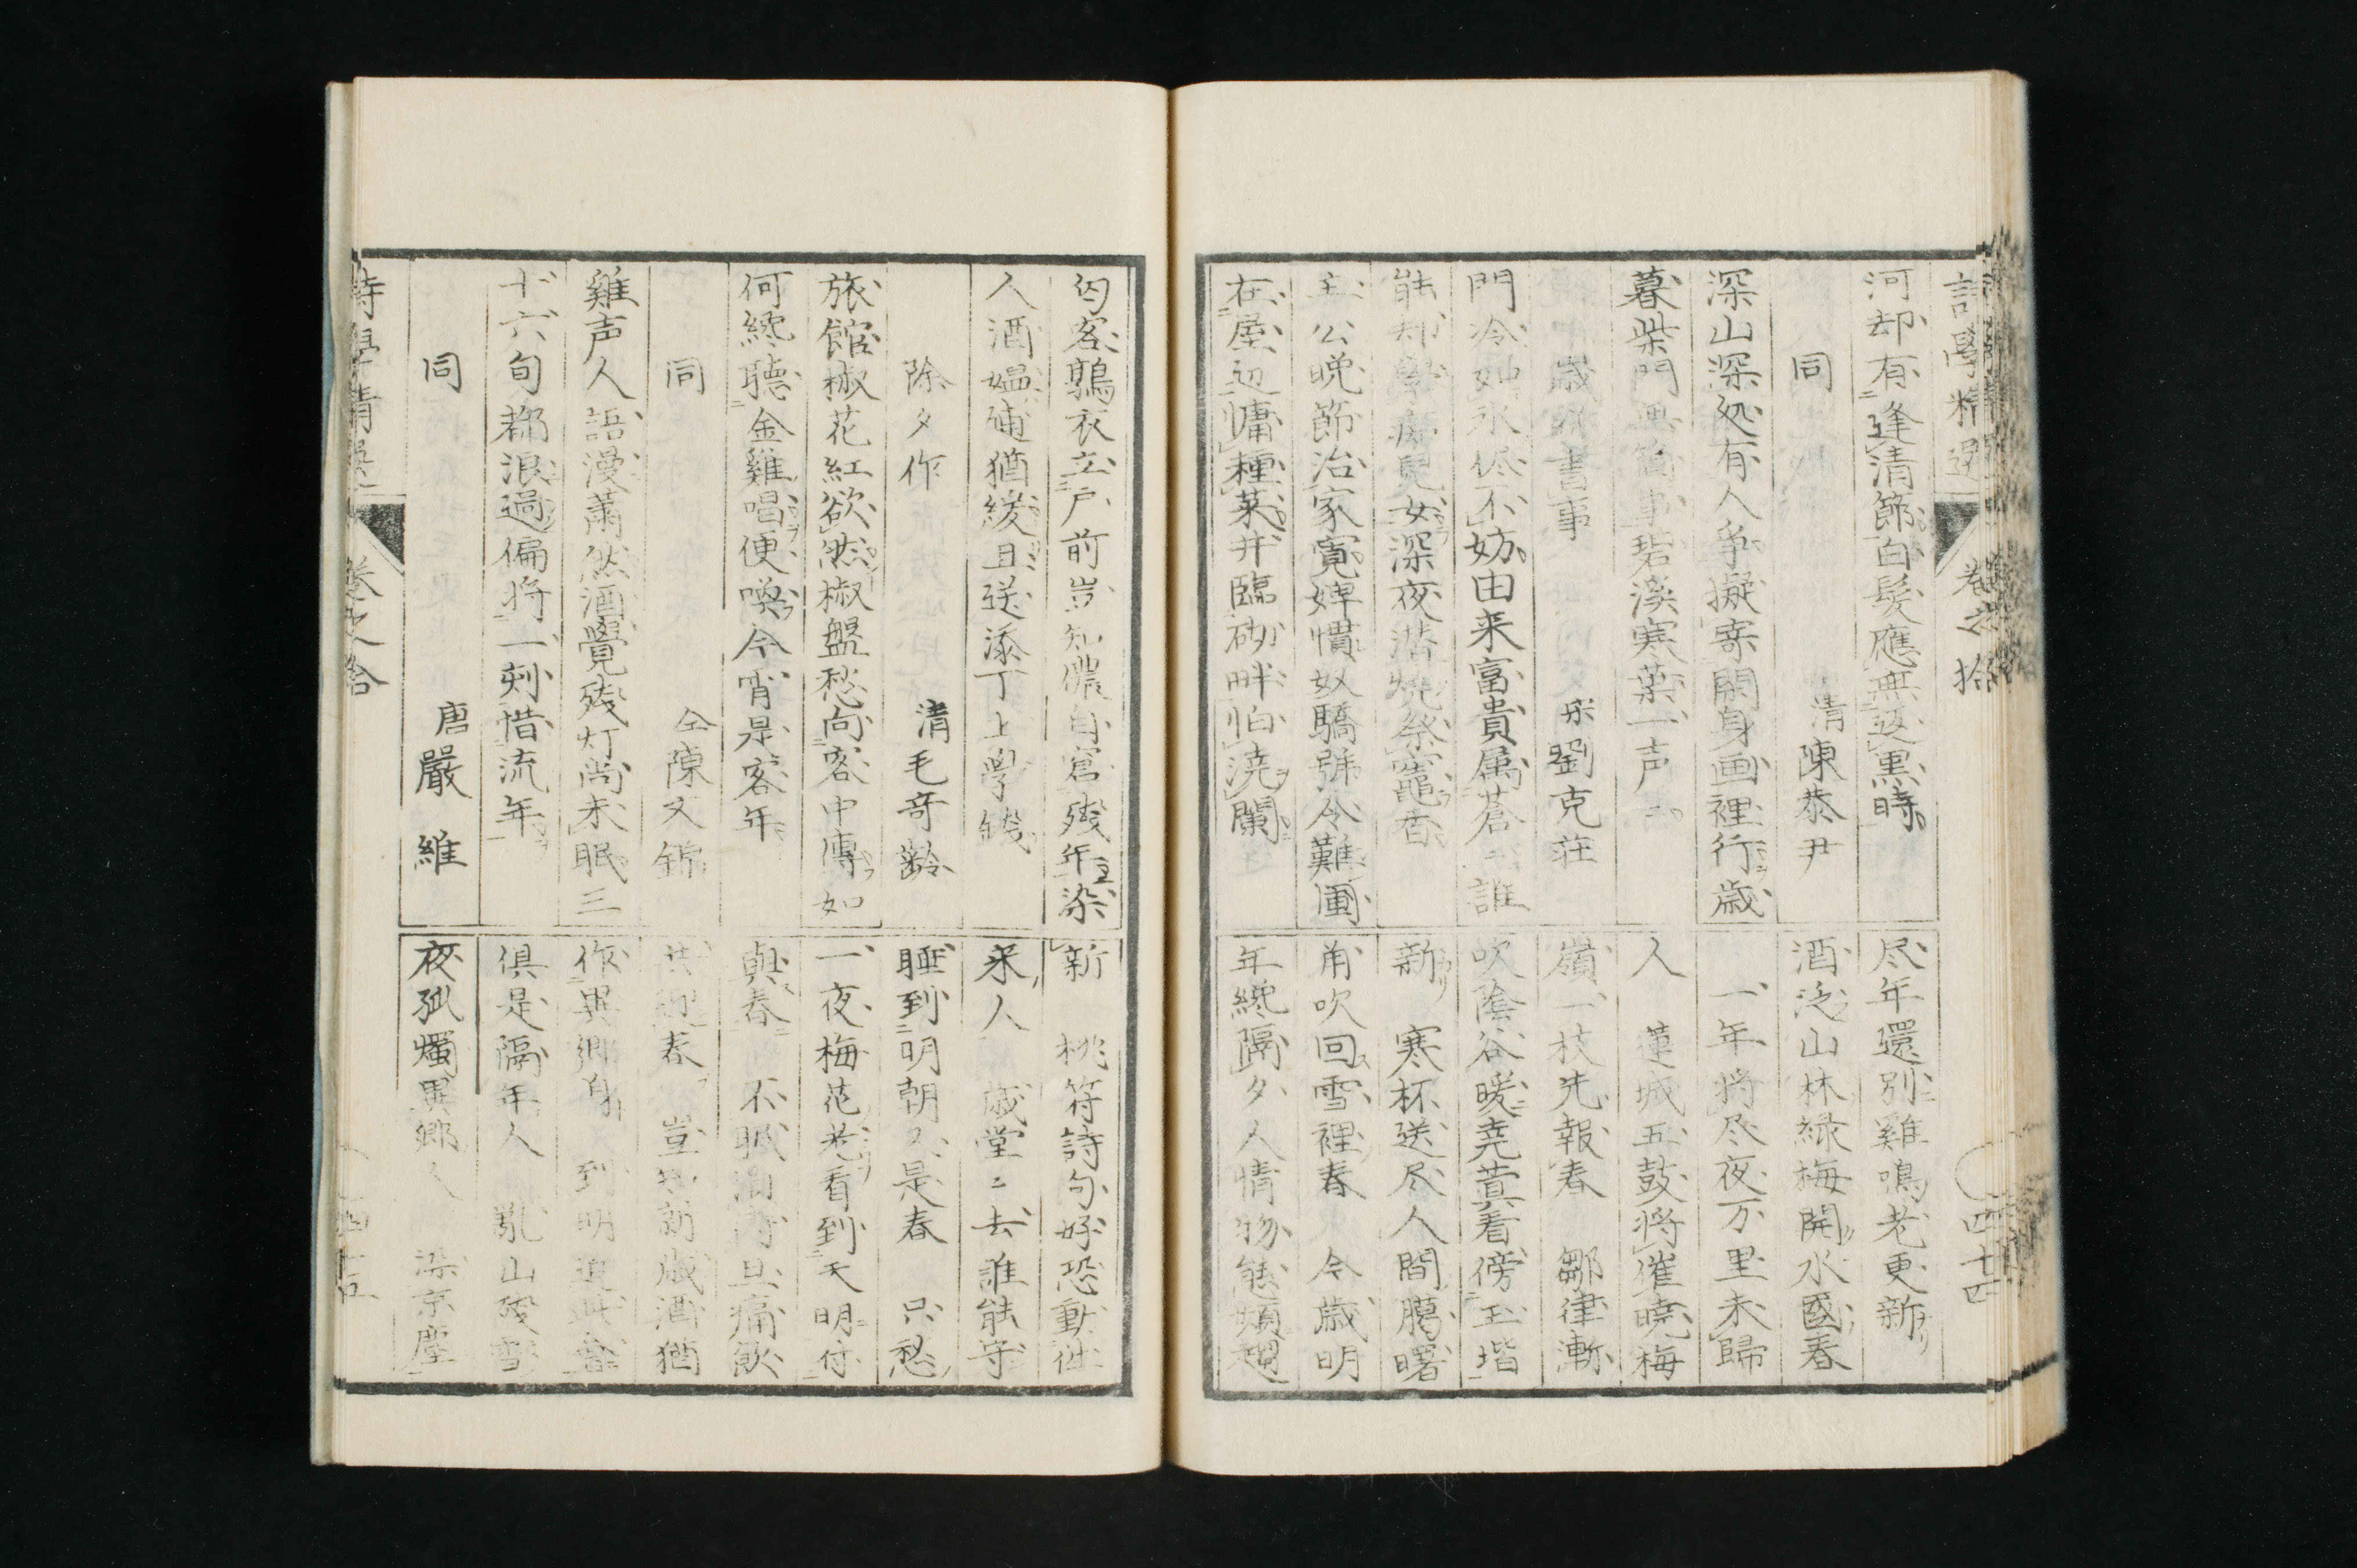 詩學精選 卷之拾 四十四
河却有逢清節白髮應無返黒時
同 清陳恭尹
深山深処有人争擬寄閑身画裡行歳
暮柴門無箇事碧溪寒葉一声〻
歳 書事 宋劉克荘
門冷如氷侭不妨由来富貴属蒼〻誰
能却學癡兒女深夜潜焼祭竈香
主公晩節治家寛婢慣奴驕號令難圃
在屋辺慵種菜井臨砌畔怕澆蘭
尽年還別雞鳴老更新
酒泛山林緑梅開水國春
一年将尽夜万里未歸
人 蓮城五鼓将催暁梅
嶺一枝先報春 鄒律漸
吹陰谷暖尭蓂看傍玉堦
新 寒杯送尽人間臈曙
角吹回雪裡春 今歳明
年纔隔夕人情物態頻
匃客鶉衣立户前豈知儂自窘残年染
人酒媪逋猶緩且送添丁上學錢
除夕作 清毛奇齢
旅館椒花紅欲然椒盤愁向客中傳如
何纔聴金雞唱便喚今宵是客年
同 仝陳文錦
雞声人語漫蕭然酒覺残灯尚未眠三
十六旬都浪過偏将一刻惜流年
同 唐嚴維
新 桃符詩句好恐動往
来人 歳堂〻去誰能守
睡到明朝又是春 只愁
一夜梅花老看到天明付
與春 不眠 旦痛飲
共迎春 豈知新歳酒猶
作異郷身 到明追此會
俱是隔年人 乱山残雪
夜孤燭異郷人 染京塵
詩學精選 卷之拾 四十五